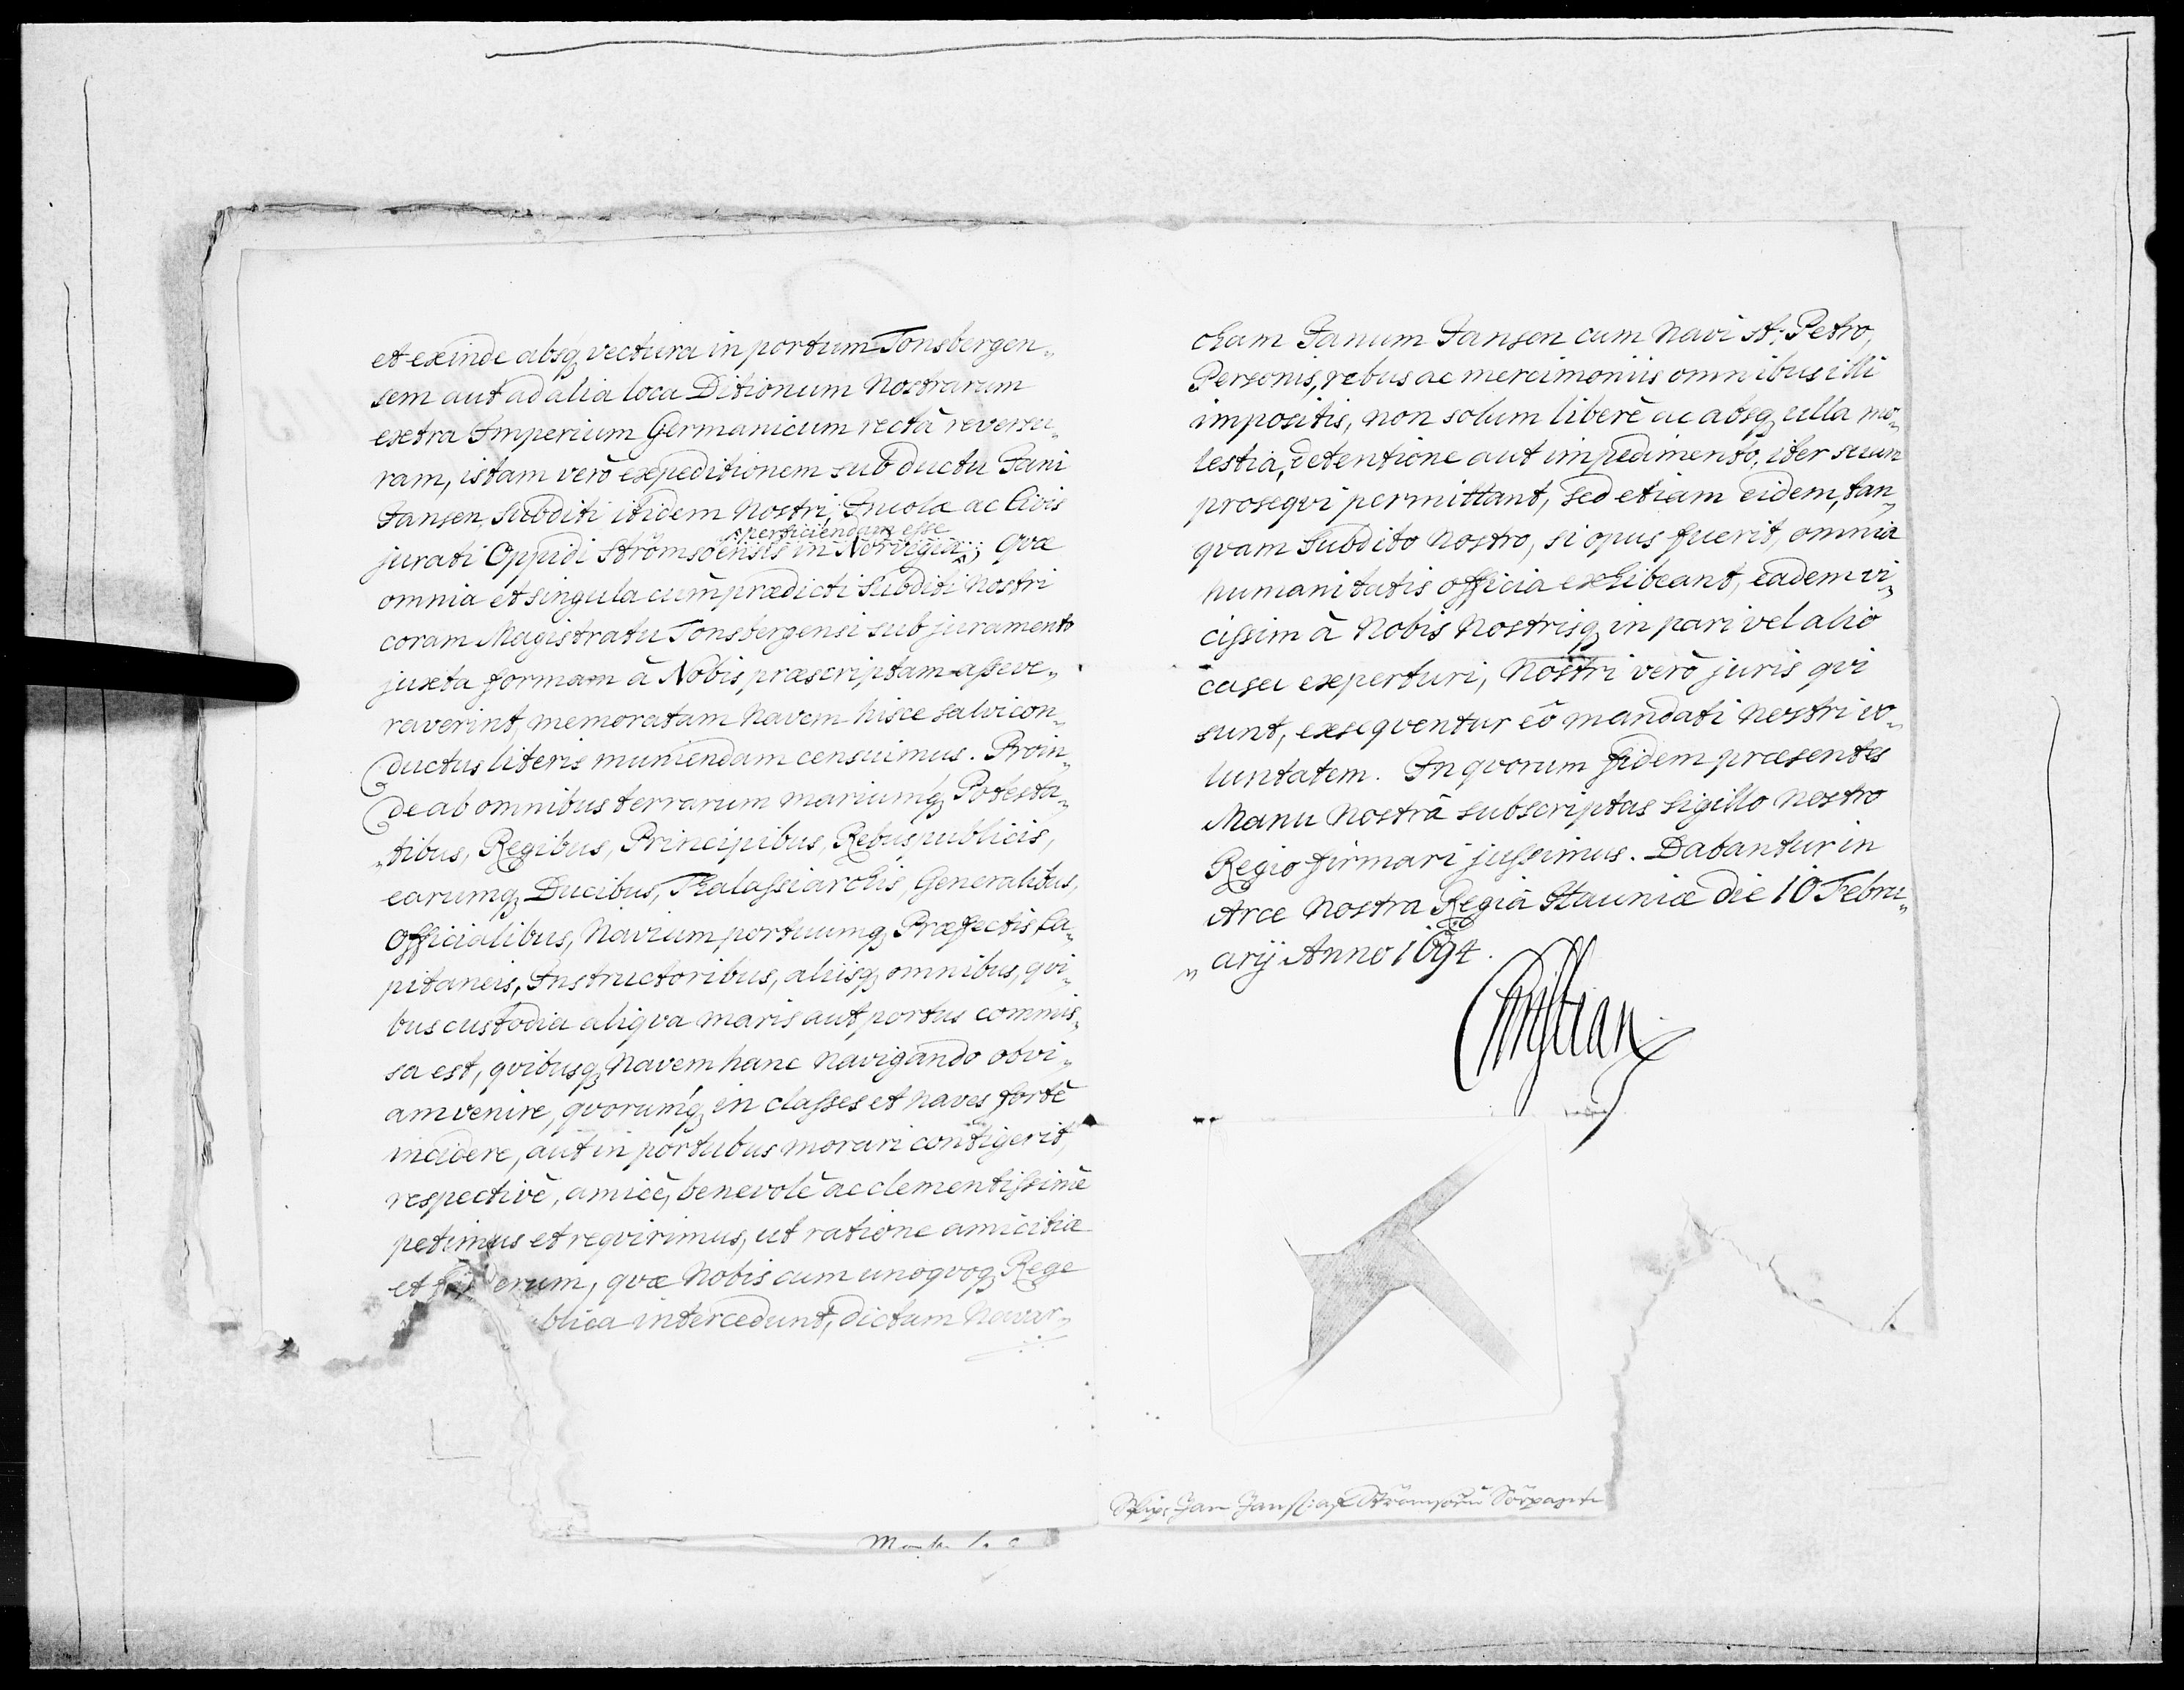 et exinde absq vectura in portum Tonsbergen„
sem aut ad alia loca Ditionum Nostrarum
extra Imperium Germanicum rectà reversu„
ram, istam verò expeditionem sub ductu Jani
Jansen, Subditi itidem Nostri, Incolæ ac Civis
perficiendam esse
jurati Oppidi Strömsöensis in Norvegia; Qvæ
omnia et singula cùm prædicti Subditi Nostri
coram Magistratu Tonsbergensi sub juramento
juxta formam à Nobis præscriptam asseve„
raverint, memoratam Navem hisce salvi con„
ductus literis muniendam censuimus. Proin„
de ab omnibus terrarum mariumq Potesta„
„tibus, Regibus, Principibus, Rebuspublicis,
earumq Ducibus, Thalassiarchis, Generalibus,
Officialibus, Navium portuumq Præfectis Ca„
pitaneis, Instructoribus, aliisq omnibus, qvi„
bus custodia aliqva maris aut portus commis„
sa est, qvibusq Navem hanc navigando obvi„
am venire, qvorumq in classes et naves fortè
incidere, aut in portubus morari contigerit,
respectivè, amicè, benevolè ac clementissimè
petimus et reqvirimus, ut ratione amicitiæ
et fœderum, qvæ Nobis cum unoqvoq Rege
blica intercedunt, dictum Navar„
cham Janum Jansen cum Navi St. Petro,
Personis, rebus ac mercimoniis omnibus illi
impositis, non solum liberè ac absq ulla mo„
lestia, detentione aut impedimento, iter suum
proseqvi permittant, sed etiam eidem, tan„
qvam Subdito Nostro, si opus fuerit, omnia
humanitatis officia exhibeant, eadem vi„
cissim à Nobis Nostrisq in pari vel alio
casu experturi, Nostri verò juris qvi
sunt, exseqventur eô mandati Nostri vo„
luntatem. In qvorum fidem præsentes
Manu Nostrâ subscriptas Sigillo Nostro
Regio firmari jussimus. Dabantur in
Arce Nostra Regiâ Hauniæ die 10 Febru„
„arij Anno 1694.
Christian
Jan Jansz: af Strömsöes Söepass